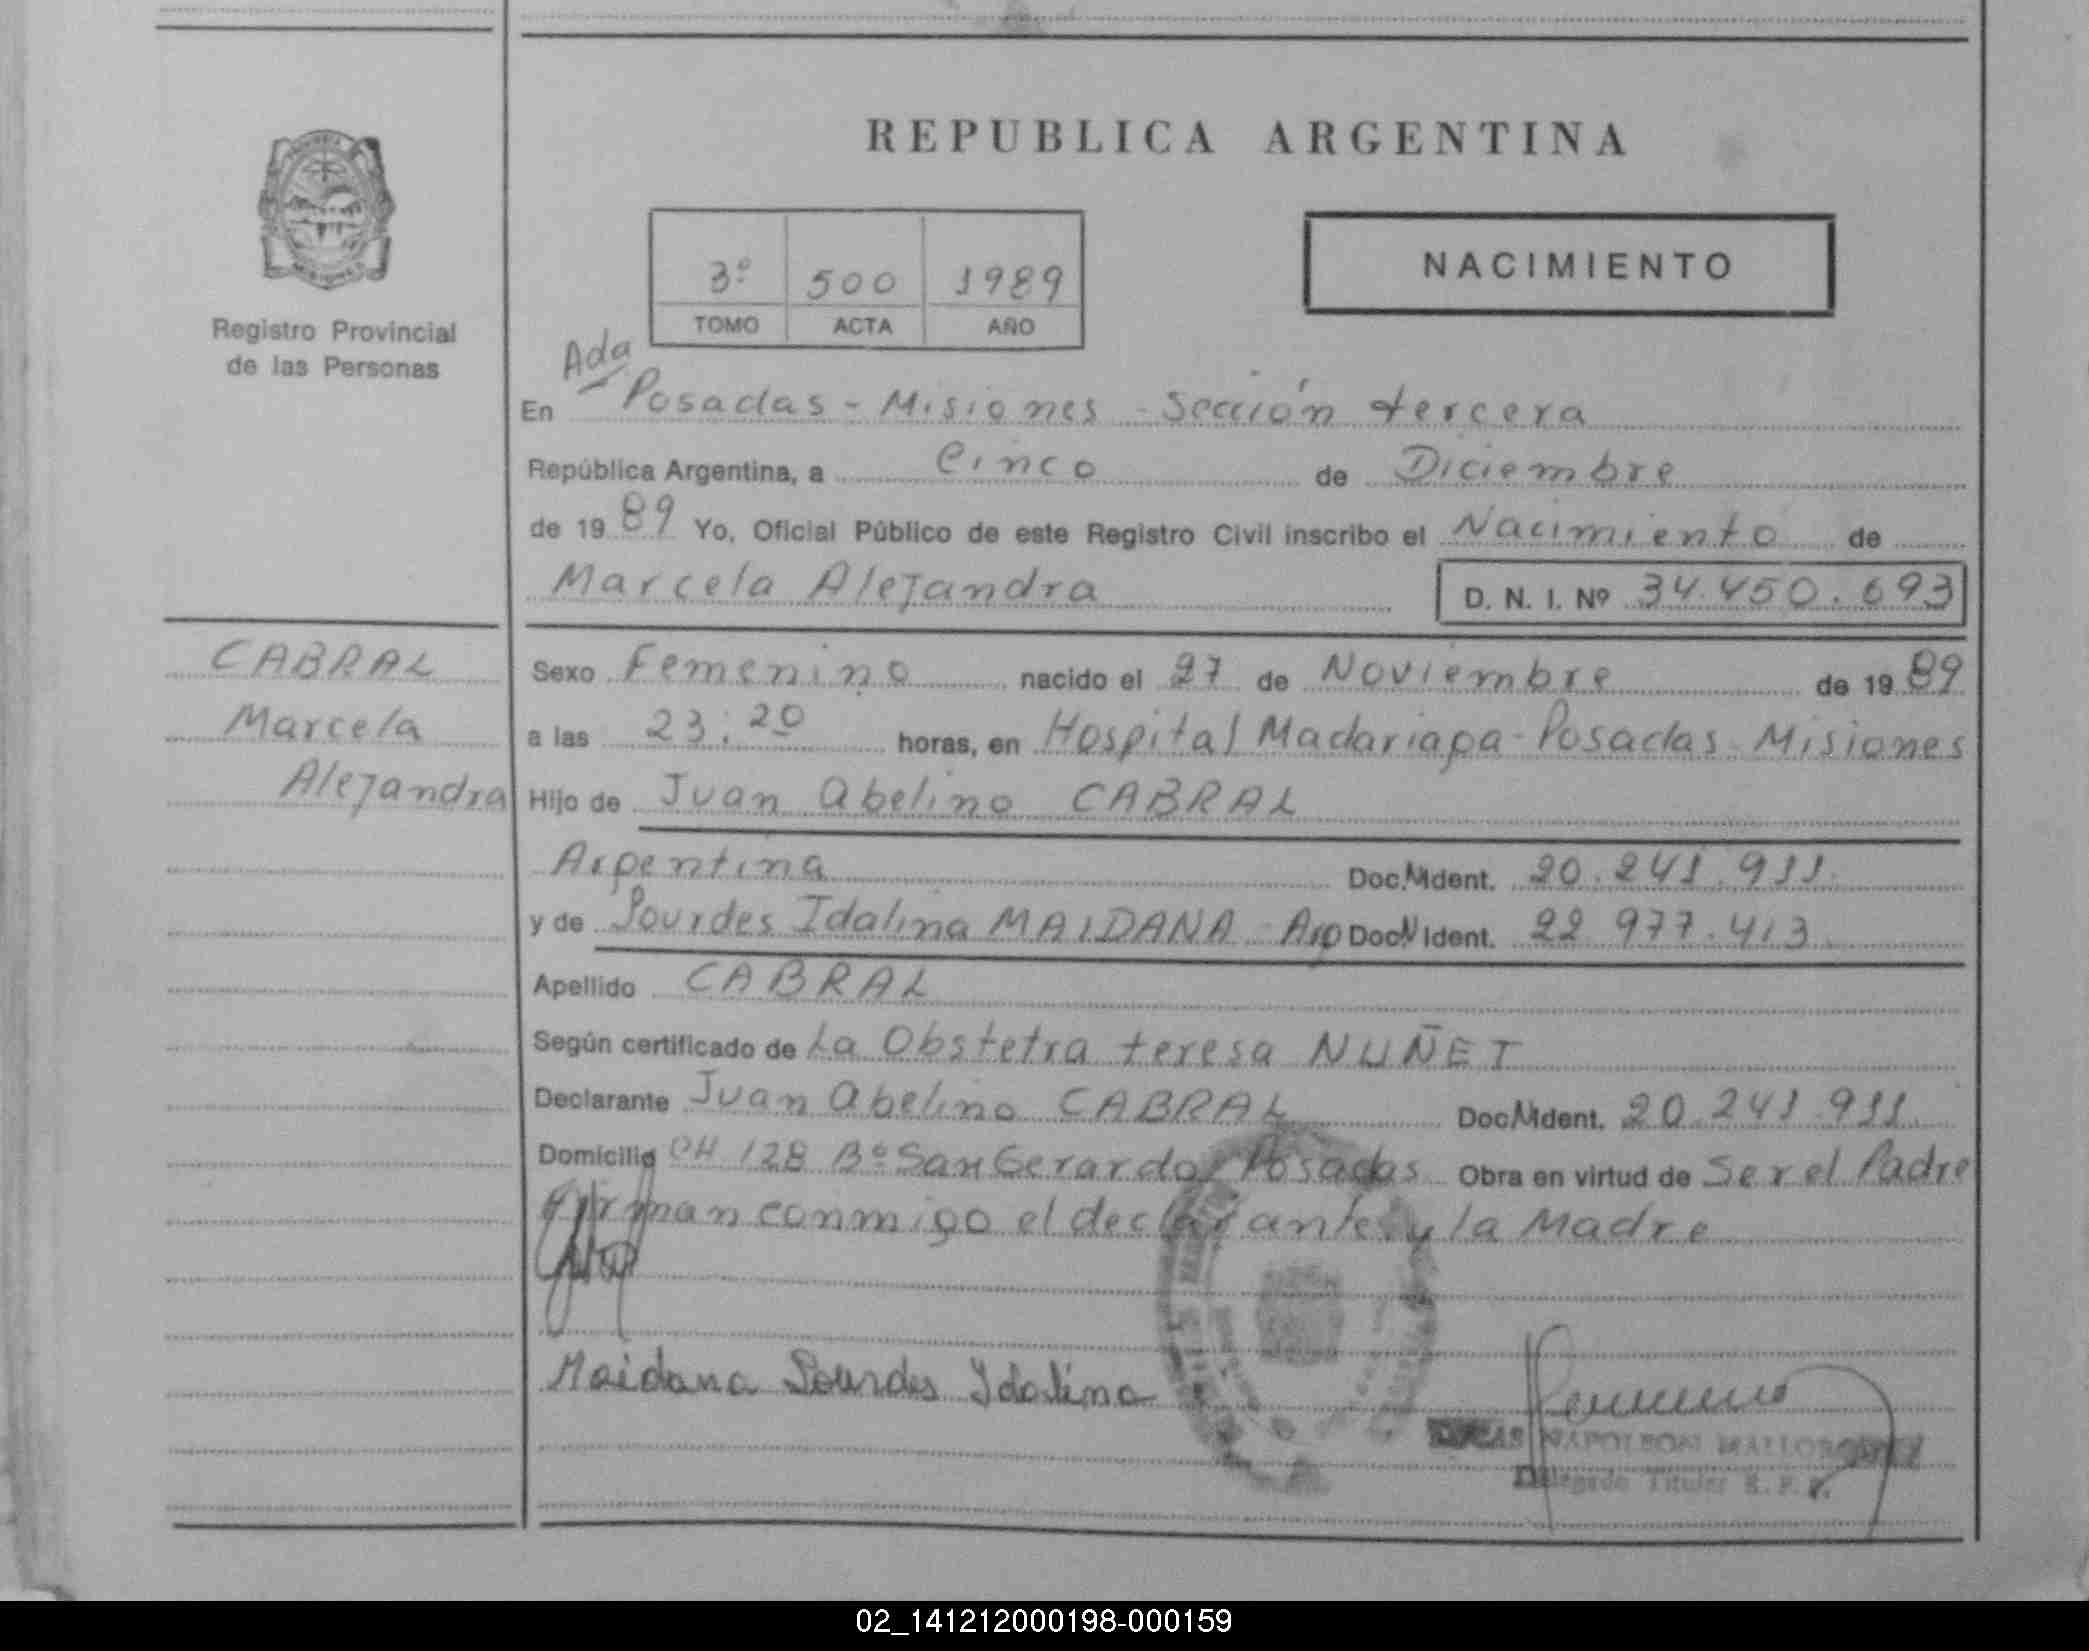 REPUBLICA ARGENTINA
Registro Provincial
de las Personas
3º 500 1989
TOMO ACTA AÑO
NACIMIENTO
Ada
En Posadas - Misiones - Sección tercera
República Argentina, a Cinco de Diciembre
de 1989 Yo, Oficial Público de este Registro Civil inscribo el Nacimiento de
Marcela Alejandra D. N. I. Nº 34.450.693
CABRAL
Marcela
Alejandra
Sexo Femenino nacido el 27 de Noviembre de 1989
a las 23:20 horas, en Hospital Madariaga - Posadas - Misiones
Hijo de Juan Abelino CABRAL
Argentina Doc. N Ident. 20.241.911
y de Lourdes Idalina MAIDANA Arg Doc N Ident. 22 977.413
Apellido CABRAL
Según certificado de La Obstetra teresa NUÑEZ
Declarante Juan Abelino CABRAL Doc N Ident. 20.241.911
Domicilio CH 128 Bº San Gerardo Posadas Obra en virtud de Ser el Padre
Firman conmigo el declarante y la Madre
Maidana Lourdes Idalina
NAPOLEON
Delegado Titular R. P. P.
02_141212000198-000159